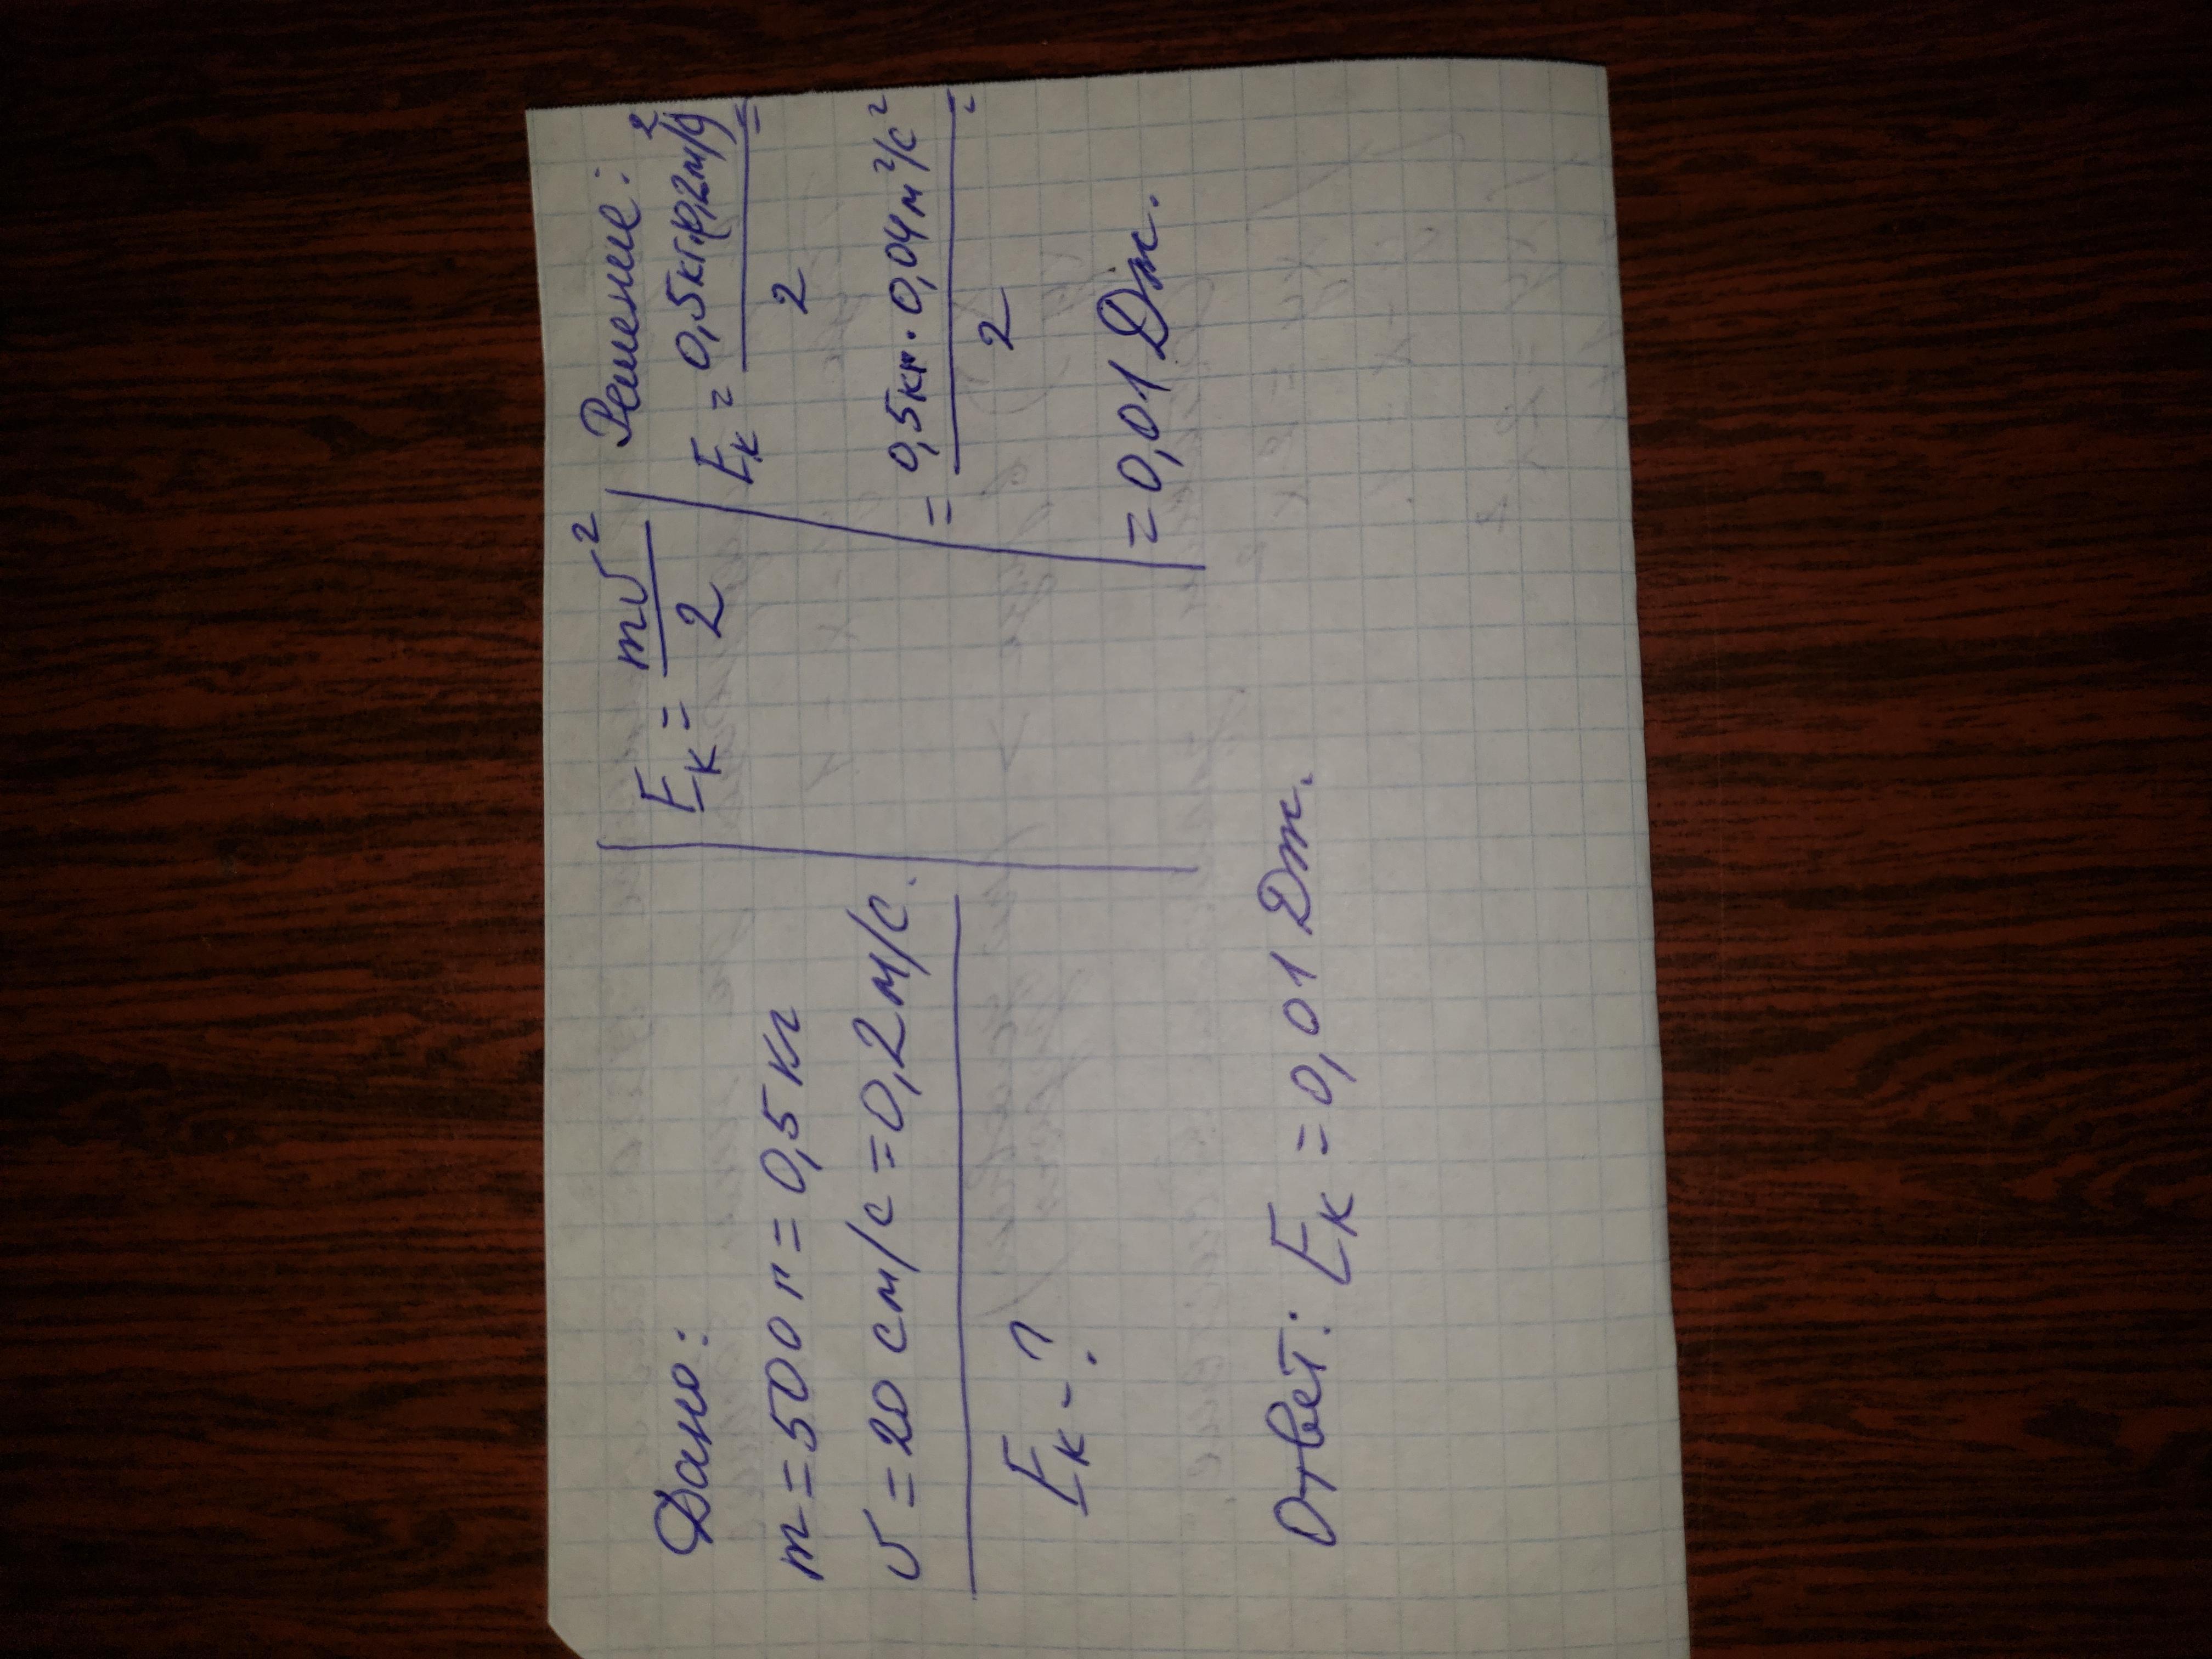 Дано:
m = 500 г = 0,5 кг
υ = 20 см/с = 0,2 м/с.
Eк - ?
Eк = mυ²/2
Решение:
Eк = 0,5кг·(0,2м/с)²/2 =
= 0,5кг · 0,04 м²/с²/2 =
= 0,01 Дж.
Ответ: Eк = 0,01 Дж.